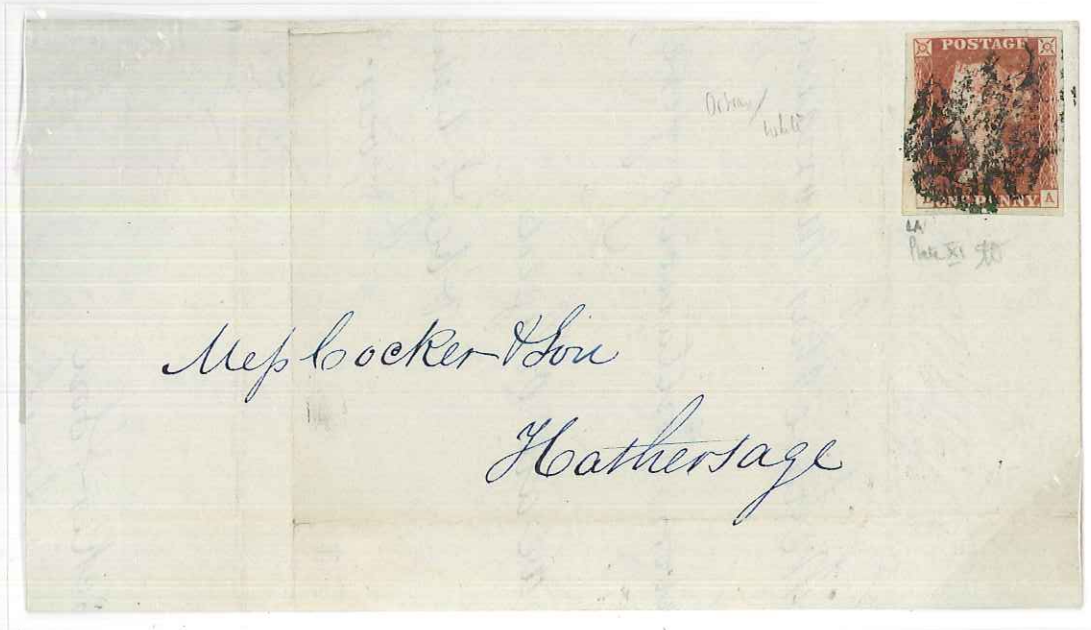 POSTAGE
ONE PENNY A
LA
Plate XI
Mess Cocker & Son
Hathersage